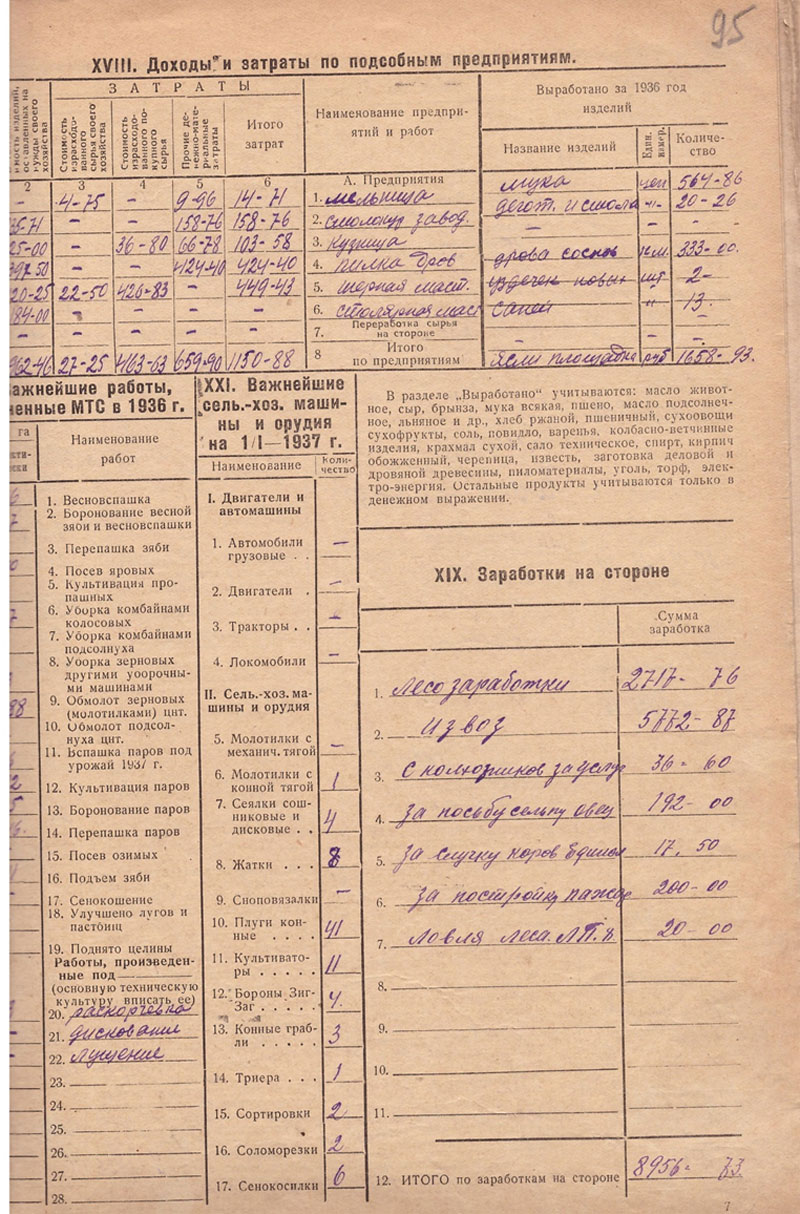 95
XVIII. Доходы и затраты по подсобным предприятиям.
ЗАТРАТЫ
Выработано за 1936 год изделий
оставленных на нужды своего хозяйства
Стоимость израсходованного сырья своего хозяйства
Стоимость израсходованного покупного сырья
Прочие денежно-материальные затраты
Итого затрат
Наименование предприятий и работ
Название изделий
Един. измер.
Количество
2 3 4 5 6 А. Предприятия
- 4-75 - 9-96 14-71 1. мельница мука цен 564-86
35-71 - - 158-76 158-76 2. смолокур завод. дегот. и смола -"- 20-26
25-00 - 36-80 66-78 103-58 3. кузница - - -
397 50 - - 424-40 424-40 4. пилка дров дрова соснов к.м. 333-00.
20-25 22-50 426-83 - 449-43 5. шорная маст. уздечек новых шт 2-
84-00 - - - - 6. столярная маст саней " 13.
- - - - - 7. Переработка сырья на стороне - - -
962-46 27-25 463-63 659-90 1150-88 8 Итого по предприятиям Ясли площадка руб 1658-93.
важнейшие работы,
ненные МТС в 1936 г.
Наименование
работ
1. Весновспашка
2. Боронование весной
зяби и весновспашки
3. Перепашка зяби
4. Посев яровых
5. Культивация про-
пашных
6. Уборка комбайнами
колосовых
7. Уборка комбайнами
подсолнуха
8. Уборка зерновых
другими уборочны-
ми машинами
9. Обмолот зерновых
(молотилками) цнт.
10. Обмолот подсол-
нуха цнт.
11. Вспашка паров под
урожай 1937 г.
12. Культивация паров
13. Боронование паров
14. Перепашка паров
15. Посев озимых
16. Подъем зяби
17. Сенокошение
18. Улучшено лугов и
пастбищ
19. Поднято целины
Работы, произведен-
ные под
(основную техническую
культуру вписать ее)
20. раскорчевка
21. дискование
22. лущение
23.
24.
25.
26.
27.
28.
XXI. Важнейшие
сель.-хоз. маши-
ны и орудия
на 1/I—1937 г.
Наименование Коли-
чество
I. Двигатели и
автомашины
1. Автомобили
грузовые . . -
2. Двигатели . -
3. Тракторы . . -
4. Локомобили -
II. Сель.-хоз. ма-
шины и орудия
5. Молотилки с
механич. тягой -
6. Молотилки с
конной тягой 1
7. Сеялки сош-
никовые и
дисковые . . 4
8. Жатки . . . 8
9. Сноповязалки -
10. Плуги кон-
ные . . . . 41
11. Культивато-
ры . . . . . 11
12. Бороны Зиг-
Заг . . . . . 4.
13. Конные граб-
ли . . . . . 3
14. Триера . . . 1
15. Сортировки 2
16. Соломорезки 2
17. Сенокосилки 6
В разделе „Выработано“ учитываются: масло живот-
ное, сыр, брынза, мука всякая, пшено, масло подсолнеч-
ное, льняное и др., хлеб ржаной, пшеничный, сухоовощи
сухофрукты, соль, повидло, варенья, колбасно-ветчинные
изделия, крахмал сухой, сало техническое, спирт, кирпич
обожженный, черепица, известь, заготовка деловой и
дровяной древесины, пиломатериалы, уголь, торф, элек-
тро-энергия. Остальные продукты учитываются только в
денежном выражении.
XIX. Заработки на стороне
Сумма
заработка
1. Лесозаработки 2717- 76
2. Извоз 5772- 87
3. С колхозников за услуг 36- 60
4. За пасьбу сельпу овец 192- 00
5. За случку коров Единол 17. 50
6. За постройку пажар 200-00
7. Ловля леса Л.П.Х 20- 00
8.
9.
10.
11.
12. ИТОГО по заработкам на стороне 8956- 73.
7